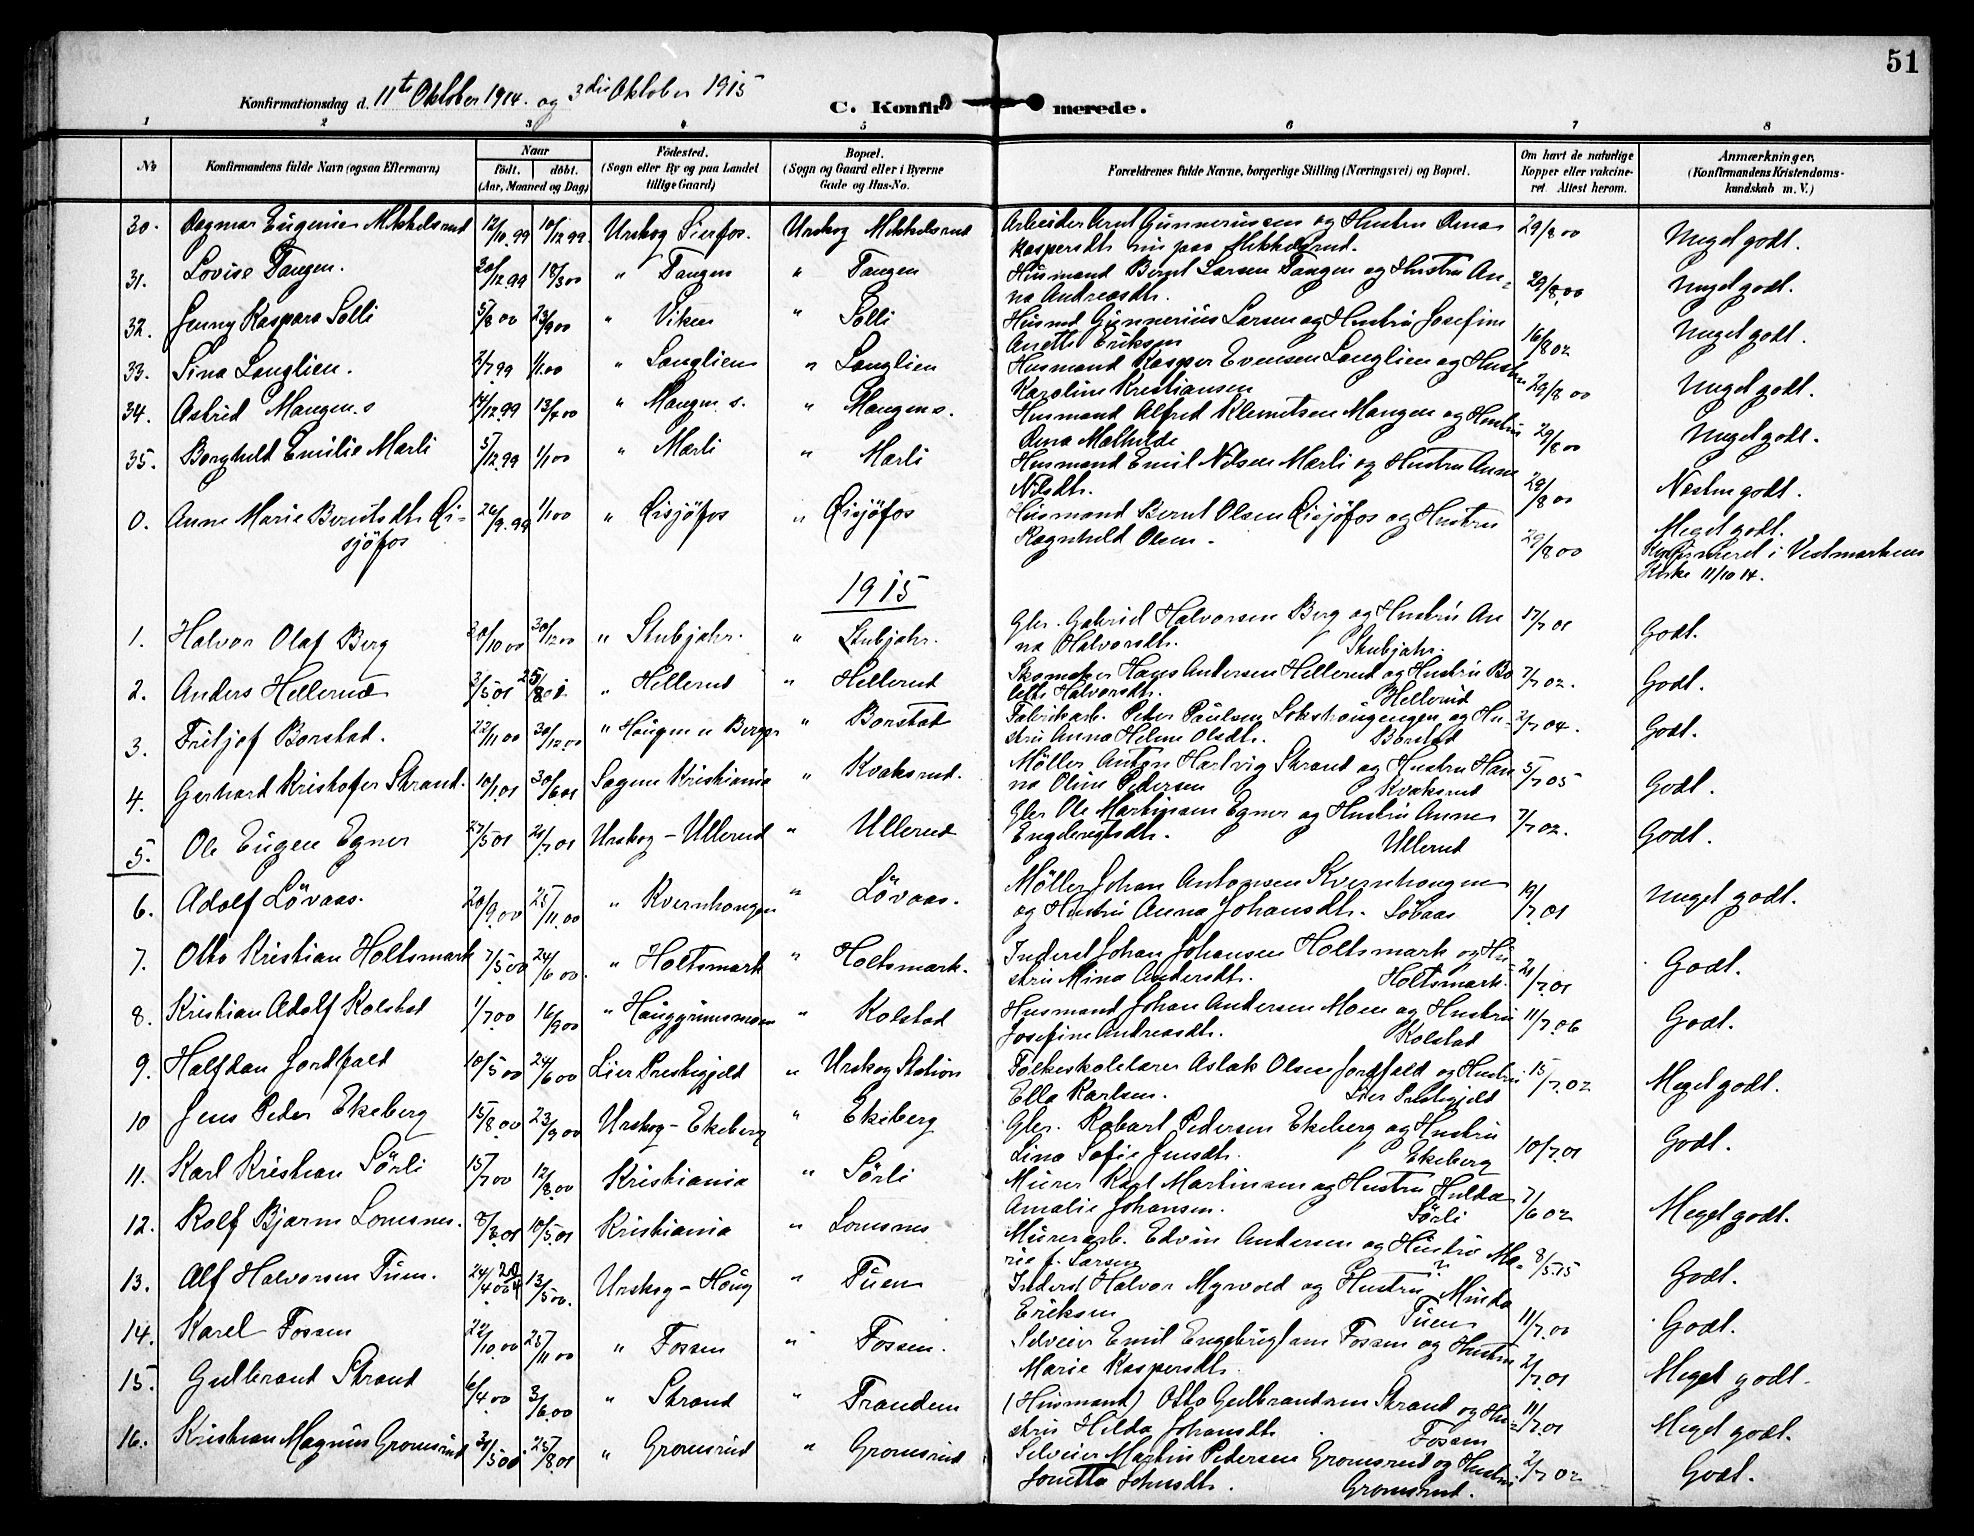 51
Konfirmationsdag d. 11te Oktober 1914. og 3die Oktober 1915
C. Konfirmerede.
1 2 3 4 5 6 7 8
No
Konfirmandens fulde Navn (ogsaa Efternavn)
Naar
födt. döbt.
(Aar, Maaned og Dag)
Födested.
(Sogn eller By og paa Landet
tillige Gaard)
Bopæl.
(Sogn og Gaard eller i Byerne
Gade og Hus-No.
Forældrenes fulde Navne, borgerlige Stilling (Næringsvei) og Bopæl.
Om havt de naturlige
Kopper eller vakcine-
ret. Attest herom.
Anmærkninger.
(Konfirmandens Kristendoms-
kundskab m. V.)
30. Dagmar Eugenie Mikkelsrud 12/10.99 10/12.99 Urskog Lierfos. Urskog Mikkelsrud Arbeider Arnt Gunneriussen og Hustru Anna 29/8 00 Meget godt.
Kaspersdtr. nu paa Mikkelsrud.
31. Lovise Tangen. 20/12.99 18/3 00 " Tangen " Tangen Husmand Bernt Larsen Tangen og Hustru An- 29/8.00 Meget godt.
na Andreasdtr.
32. Jenny Kaspara Solli 5/8 00 23/9 00 " Viken " Solli Husmd Gunnerius Larsen og Hustru Josefine 16/8 02 Meget godt.
Anette Eriksen
33. Sina Langlien. 2/7 99 1/1.00 " Langlien " Langlien Husmand Kasper Evensen Langlien og Hustru 29/8 00 Meget godt.
Karoline Kristiansen
34. Astrid Mangen s 14/12.99 13/4 00 " Mangen s. " Mangen s. Husmand Alfred Klemetsen Mangen og Hustru 29/8 00 Meget godt.
Anna Mathilde
35. Borghild Emilie Mærli 5/12.99 1/1 00 " Mærli " Mærli Husmand Emil Nilsen Mærli og Hustru Anne 29/8 00 Næsten godt.
Nilsdtr.
0. Anne Marie Berntsdtr. Öi- 26/9.99 1/1 00 " Öisjöfos " Öisjöfos Husmand Bernt Olsen Öisjöfos og Hustru 29/8 00 Meget godt.
sjöfos Ragnhild Olsen. Konfirmeret i Vestmarkens
Kirke 11/10 14.
1915
1. Halvor Olaf Berg 20/10 00 30/12 00 " Stubjahr. " Stubjahr. Gbr. Gabriel Halvorsen Berg og Hustru An 17/7 01 Godt.
na Halvorsdtr. Stubjahr.
2. Anders Hellerud 3/5 01 25/8 01 " Hellerud " Hellerud Skomager Hans Andersen Hellerud og Hustru Bo 7/7 02. Godt.
lette Halvorsdtr. Hellerud
3. Fritjof Borstad. 22/11 00 30/12 00 " Haugen u Berger " Borstad Fabrikarb. Peder Paulsen og Hu- 2/7 04. Godt.
stru Anna Helene Olsdtr. Borstad
4. Gerhard Kristofer Strand. 10/1 01 30/6 01 Sagene Kristiania " Kvaksrud. Möller Anton Hartvig Strand og Hustru Han 5/7 05 Godt.
na Oline Pedersen Kvaksrud
5. Ole Eugen Egner 27/5 01 21/7 01 Urskog - Ullerud " Ullerud Gbr Ole Martinsen Egner og Hustru Anne 7/7 02. Godt.
Engebregtsdtr. Ullerud
6. Adolf Lövaas. 20/9.00 25/11.00 " Kvernhaugen " Lövaas. Möller Johan Antonsen Kvernhaugen 19/7.01 Meget godt.
og Hustru Anna Johansdtr. Löbaas
7. Otto Kristian Holtsmark 7/5.00 24/6.00. " Holtsmark " Holtsmark. Inderst Johan Johansen Holtsmark og Hu- 21/7.01 Godt.
stru Mina Andersdtr. Holtsmark.
8. Kristian Adolf Kolstad 1/7.00 16/9 00 " Hauggrimsmoen " Kolstad Husmand Johan Andersen Moen og Hustru 11/7.06 Godt.
Josefine Andreasdtr. Kolstad
9. Halfdan Jordfald 10/5 00 24/6 00 Lier Prestegjeld " Urskog Station Folkeskolelærer Aslak Olsen Jordfald og Hustru 15/7.02 Meget godt.
Ella Karlsen. Lier Prestegjeld
10 Jens Peder Ekeberg 15/8.00 23/9 00 Urskog - Ekeberg " Ekeberg Gbr. Robert Pedersen Ekeberg og Hustru 10/7.01 Godt.
Lina Sofie Jensdtr. Ekeberg
11. Karl Kristian Sörli 15/7 00 12/8.00 Kristiania " Sörli Murer Karl Martinsen og Hustru Hulda 7/6 02 Meget godt.
Amalie Johansen. Sörli
12. Rolf Bjarne Lomsnes. 8/3.01 10/5.01 Kristiania " Lomsnes Murerarb. Edvin Andersen og Hustru Ma- 8/5.15 Godt.
rie f. Larsen
13. Alf Halvorsen Tuen. 24/4 00 13/5 00. Urskog - Haug " Tuen Inderst Halvor Myrvold og Hustru Minda 11/7.00 Godt.
Eriksen Tuen
14. Karel Fossen 22/10.00 25/11 00 " Fossen " Fossen. Selveier Emil Engebrigtsen Fossen og Hustru 2/7.01 Meget godt.
Marie Kaspersdtr.
15. Gulbrand Strand 6/4.00 3/6.00 " Strand " Trandem (Husmand) Otto Gulbrandsen Strand og Hu- 11/7.01 Meget godt.
stru Hilda Johansdtr. Fossen
16. Kristian Magnus Gromsrud 31/5 00 " Gromsrud " Gromsrud Selveier Martin Pedersen Gromsrud og Hustru 2/7 02 Godt.
Jonetta Johnsdtr. Gromsrud.